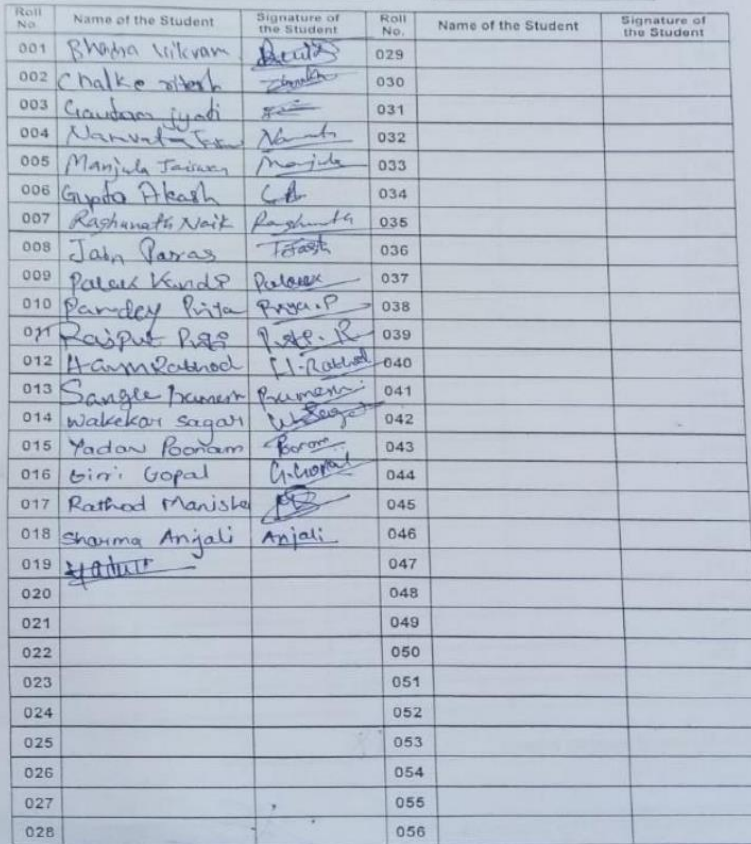 Roll No. Name of the Student Signature of the Student Roll No. Name of the Student Signature of the Student
001 Vikram 029
002 Chalke ritesh 030
003 Gautam jyoti 031
004 Namrata 032
005 Manjula Jaiswar Manjula 033
006 Gupta Akash 034
007 Raghunath Naik Raghunath 035
008 Jain Paras 036
009 Palak Palak 037
010 Pandey Priya Priya.P 038
011 Rajput 039
012 Rathod H.Rathod 040
013 Sangle 041
014 Wakekar sagar 042
015 Yadav Poonam Poonam 043
016 Giri Gopal G.Gopal 044
017 Rathod Manisha 045
018 Sharma Anjali Anjali 046
019 047
020 048
021 049
022 050
023 051
024 052
025 053
026 054
027 055
028 056